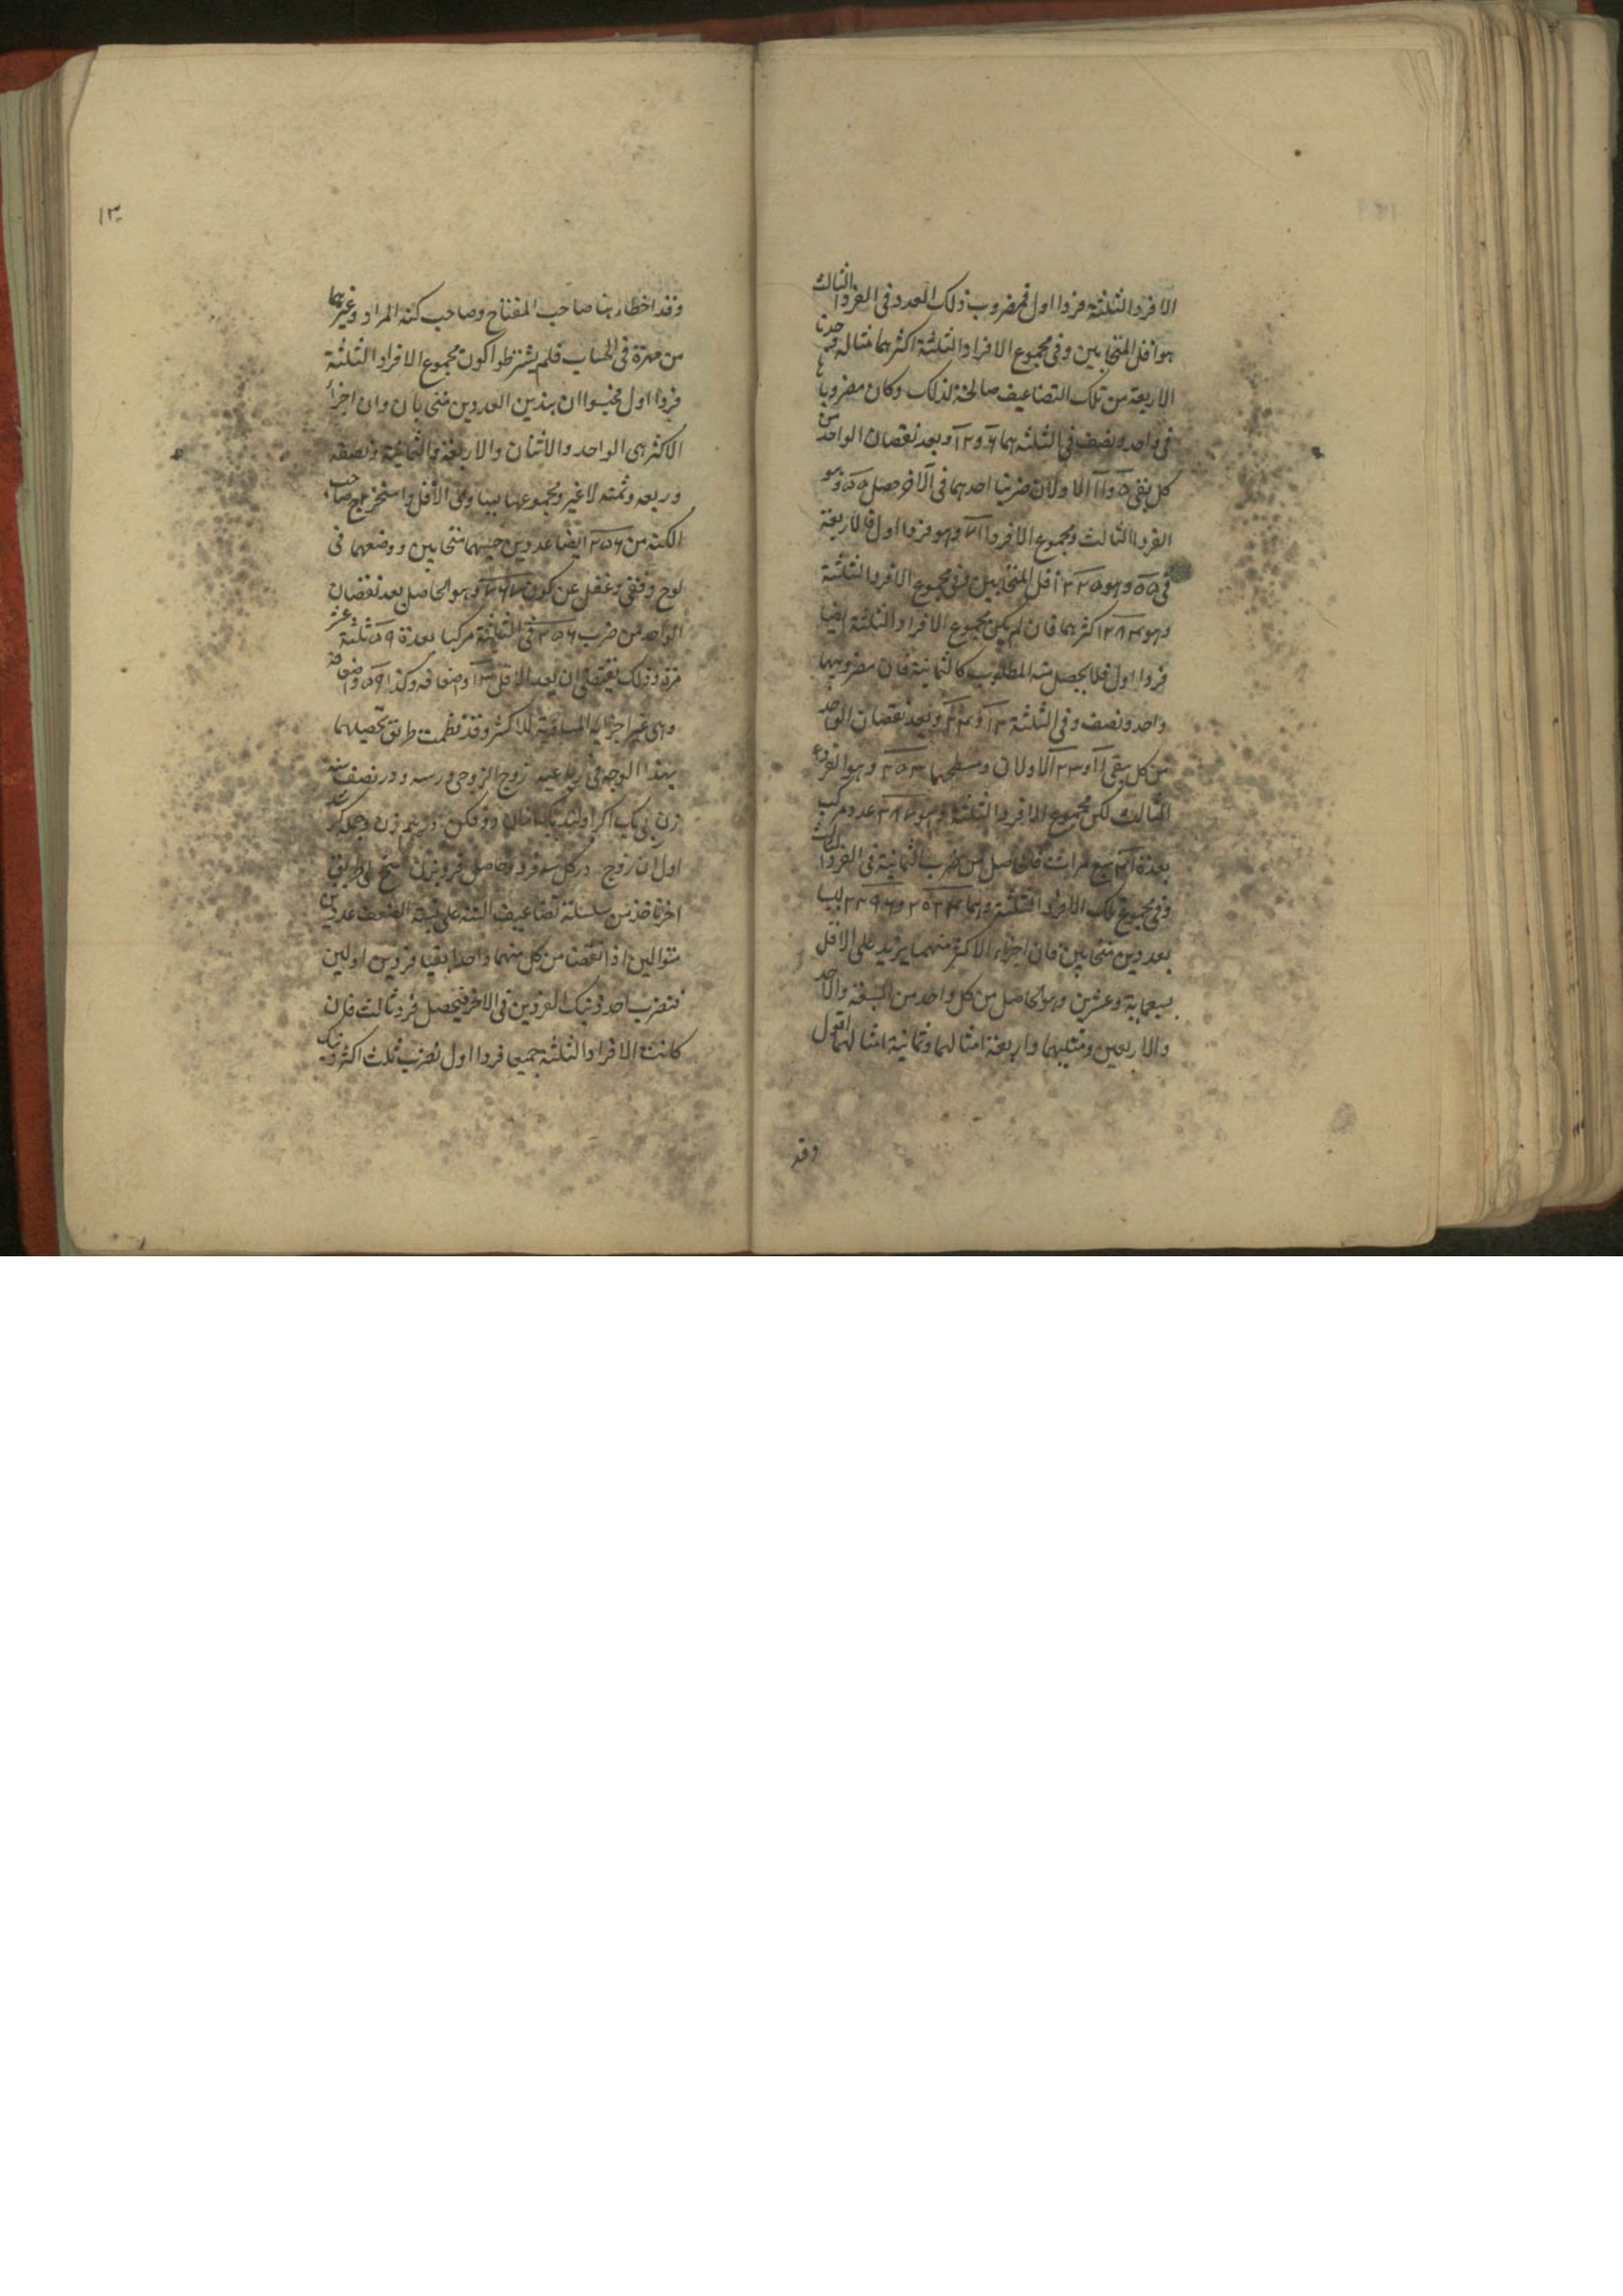 الافراد الثلثة فردا اول فمضروب ذلك العدد فى الفرد الثالث
هو اقل المتحابين وفى مجموع الافراد الثلثة اكثرهما مثاله وجدنا
الاربعة من تلك التضاعيف صالحة لذلك وكان مضروباها
فى واحد ونصف فى الثلثة هما ٦ و ١٢ وبعد نقصان الواحد من
كل بقى ٥ و ١١ الاولان ضربنا احدهما فى الآخر حصل ٥٥ وهو
الفرد الثالث ومجموع الافراد ٧١ وهو فردا اول فالاربعة
فى ٥٥ وهو ٢٢٠ اقل المتحابين وفى مجموع الافراد الثلثة
وهو ٢٨٤ اكثرهما فان لم يكن مجموع الافراد الثلثة ايضا
فردا اول فلا يحصل منه المطلوب كالثمانية فان مضروبيها
واحد ونصف وفى الثلثة ١٢ و ٢٤ وبعد نقصان الواحد
من كل بقى ١١ و ٢٣ الاولان ومسطحهما ٢٥٣ وهو الفرد
الثالث لكن مجموع الافراد الثلثة وهو ٢٨٧ عدد مركب
بعده ٤١ سبع مرات فالحاصل من ضرب الثمانية فى الفرد الثالث
وفى مجموع تلك الافراد الثلثة وهما ٢٠٢٤ و ٢٢٩٦ ليسا
بعددين متحابين فان اجزاء الاكثر منهما يزيد على الاقل
بسبعماية وعشرين وهو الحاصل من كل واحد من السبعة والاحد
والاربعين ومثليهما واربعة امثالهما وثمانية امثالهما اقول
وقد
١٣٠
وقد اخطا هنا صاحب المفتاح وصاحب كنه المراد وغيرهما
من مهرة فى الحساب فلم يشترطوا كون مجموع الافراد الثلثة
فردا اول فحسبوا ان هذين العددين متحابان وان اجزاء
الاكثر هى الواحد والاثنان والاربعة والثمانية ونصفه
وربعه وثمنه لا غير ومجموعها يساوى الاقل واستخرج صاحب
الكنه من ٢٥٦ ايضا عددين حسبهما متحابين ووضعهما فى
لوح وفقى وغفل عن كون ٧٦٧ وهو الحاصل بعد نقصان
الواحد من ضرب ٢٥٦ فى الثلثة مركبا بعده ٥٩ ثلثة عشر
مرة وذلك يقتضى ان يعد الاقل ١٣ واضعافه وكذا ٥٩ واضعافه
وهى غير اجزايه المساوية للاكثر وقد نظمت طريق تحصيلهما
بهذا الوجه فى رباعية زوج الزوجى در سه و در نصف سه
زن بى يك اكر اولند يكسان دو فكن درهم زن و جمله كر
اول ان زوج در كل سه فرد و حاصل فرد بزن نسخ اى طريق
اخر تاخذ من سلسلة تضاعيف الستة على نسبة الضعف عددين
متوالين اذا نقصت من كل منهما واحدا بقيا فردين اولين
فتضرب احد ذينك الفردين فى الاخر فيحصل فرد ثالث فان
كانت الافراد الثلثة جميعا فردا اول تضرب ثلث اكثر ذينك